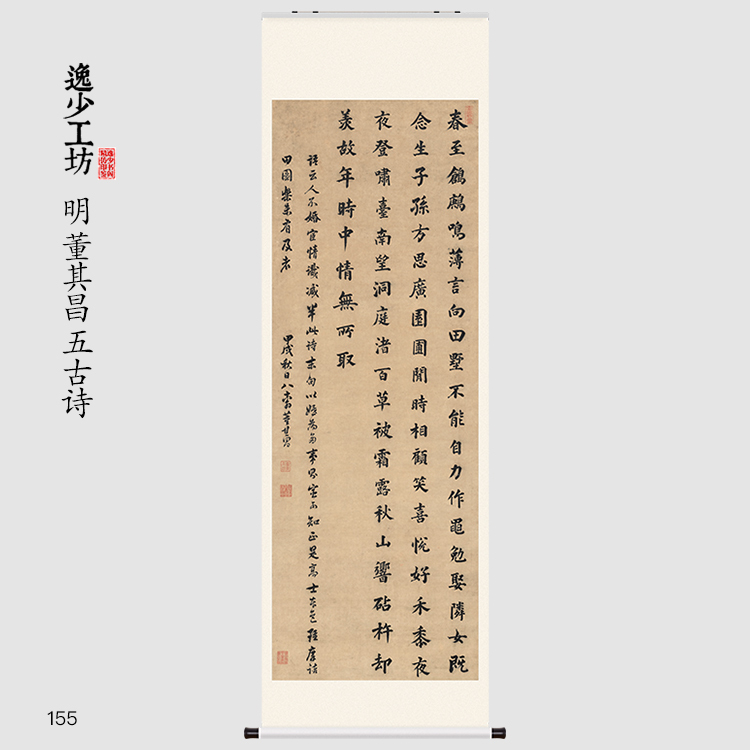 逸少工坊
明董其昌五古诗
春至鶬鶊鳴薄言向田墅不能自力作黽勉娶隣女既
念生子孫方思廣園圃閒時相顧笑喜悅好禾黍夜
夜登嘯臺南望洞庭渚百草被霜露秋山響砧杵却
羨故年時中情無所取
語云人不婚宦情識減半此詩末句以 知正是高士本色 摩詰
田園樂未有及者
甲戌秋日八十翁董其昌
155